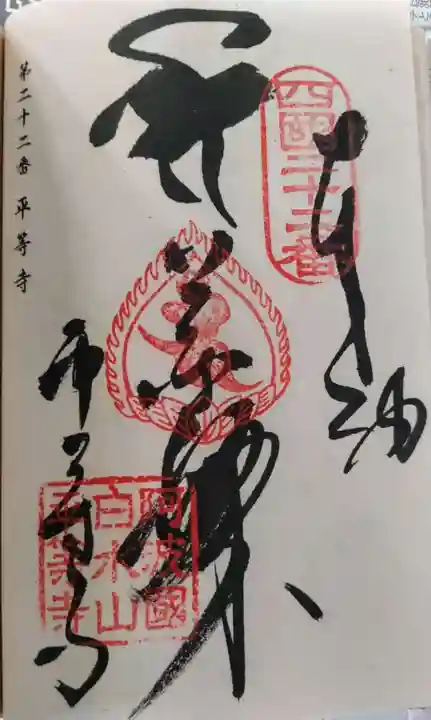 四國二十二番
奉納
薬師
第二十二番 平等寺
平等寺
阿波國
白水山
平等寺